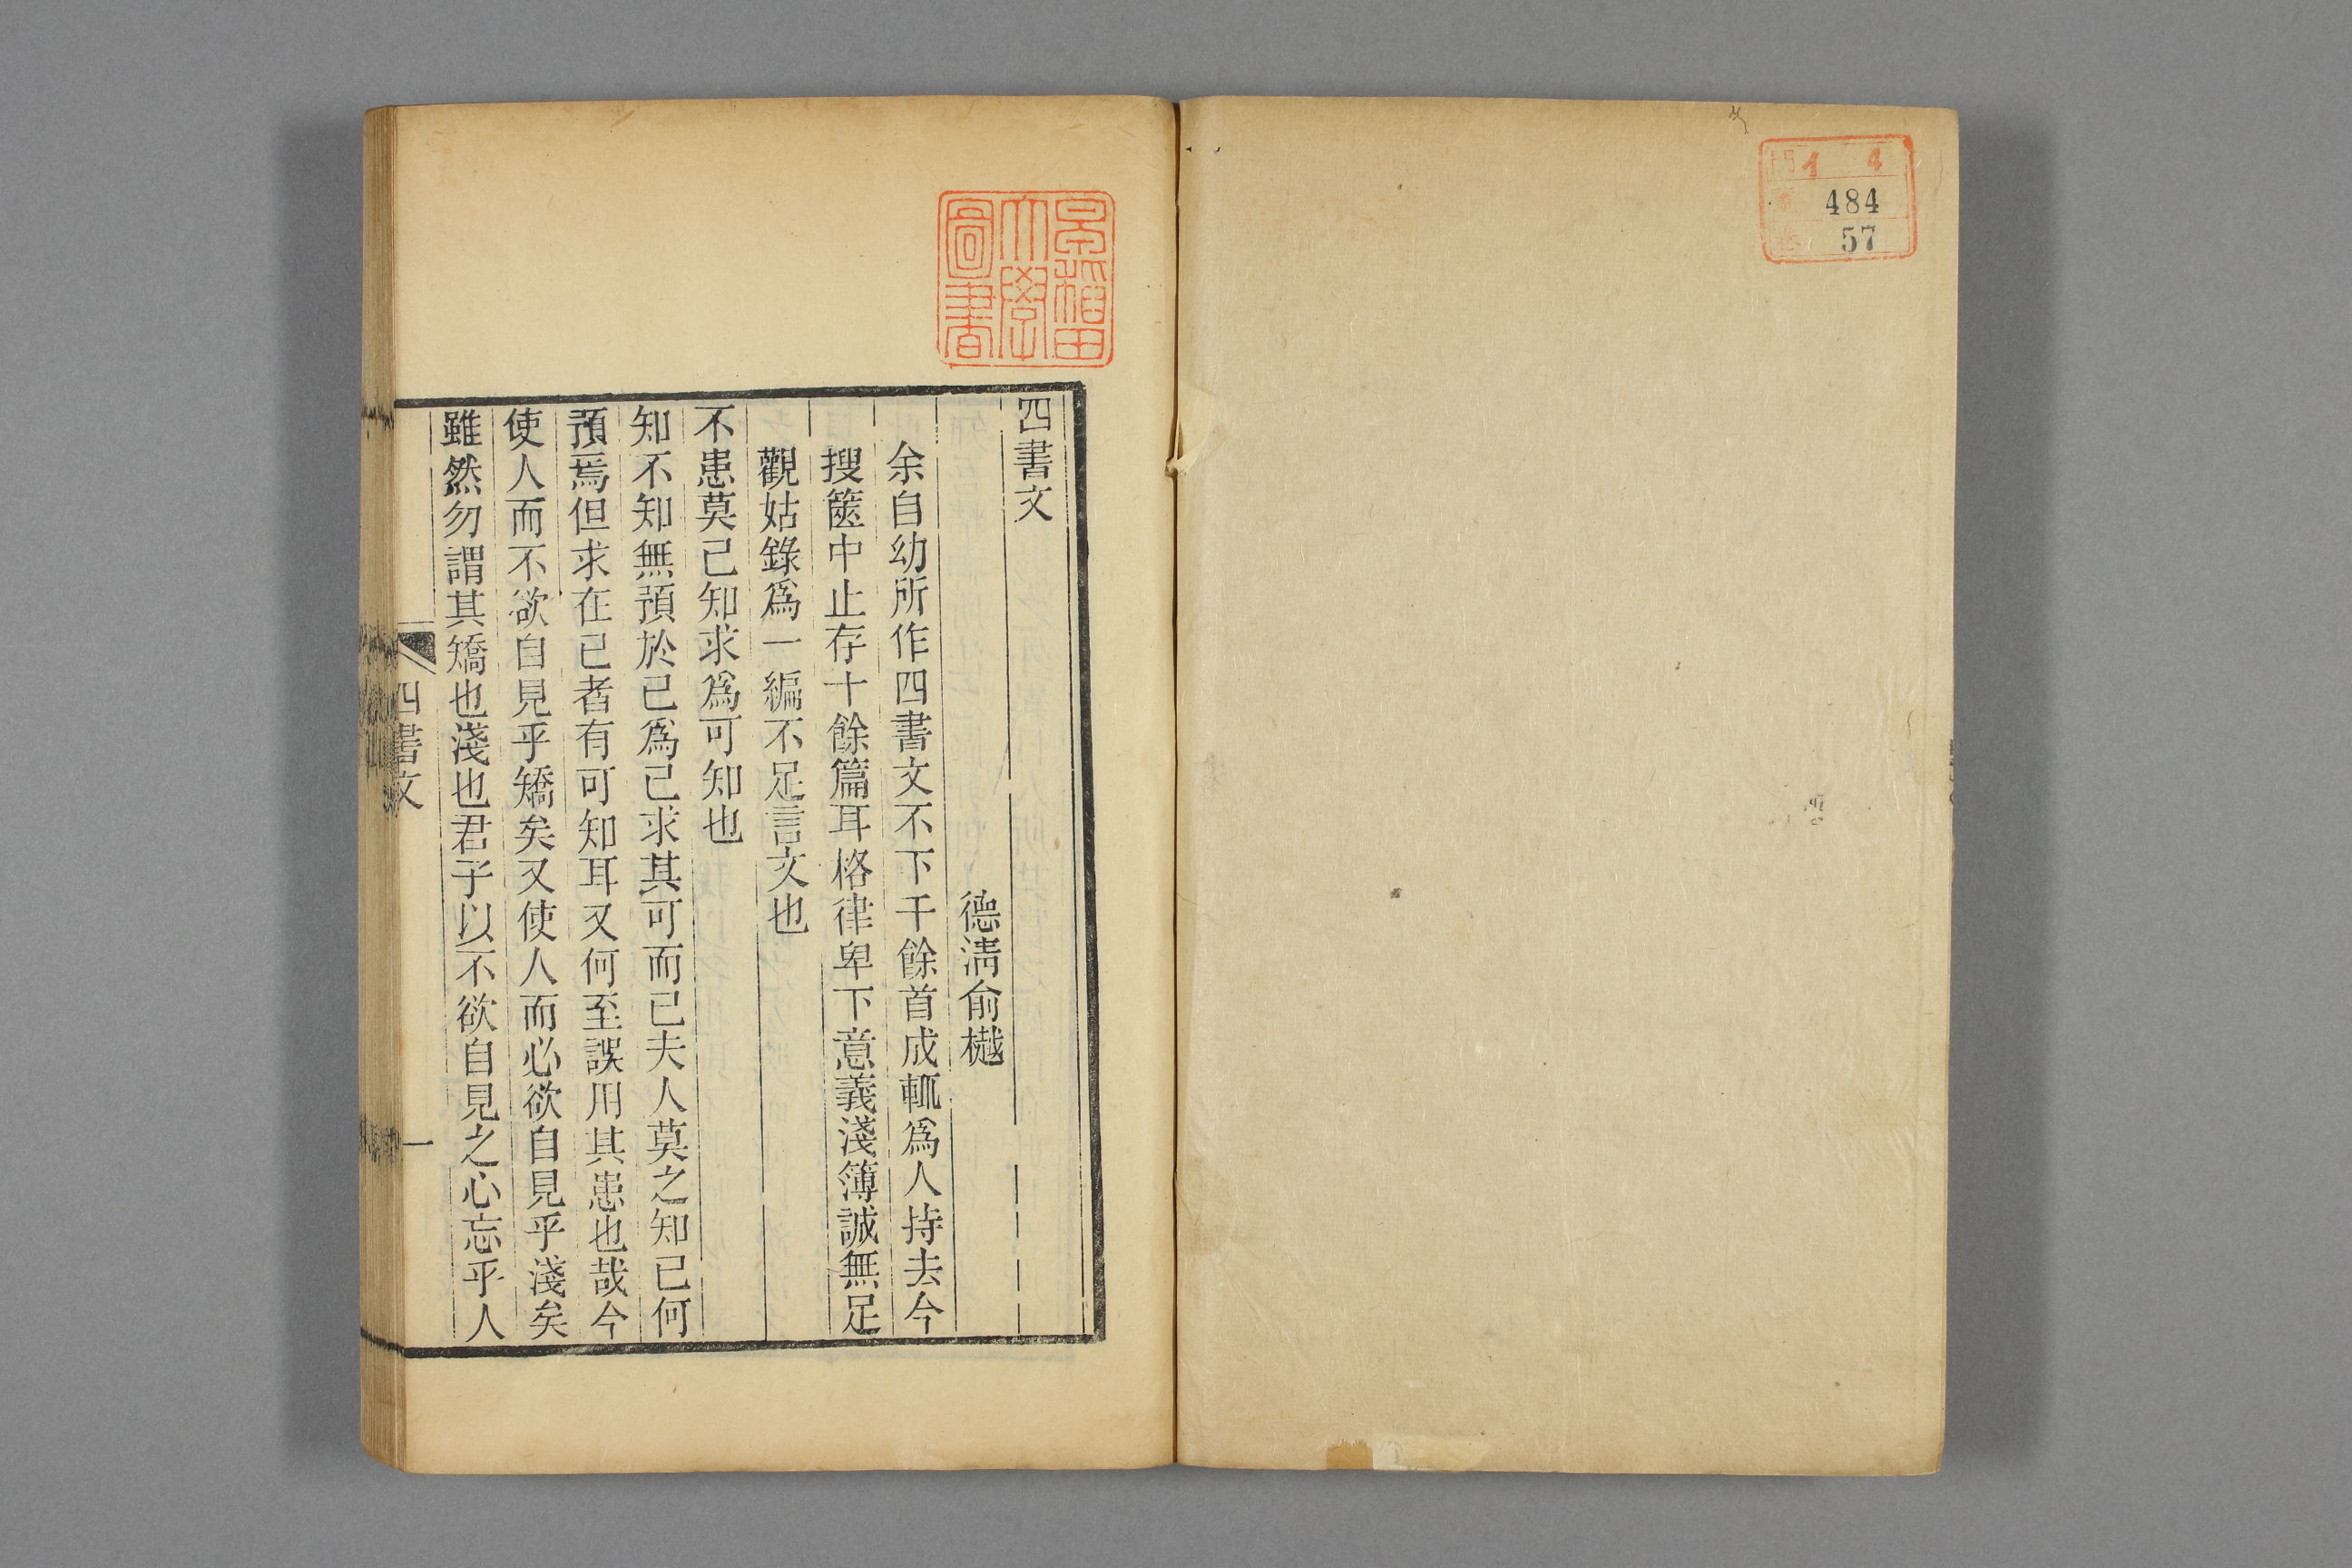 門 イ 4
號 484
卷 57
早稻田
大學
圖書
四書文
德淸俞樾
余自幼所作四書文不下千餘首成輒爲人持去今
搜篋中止存十餘篇耳格律卑下意義淺簿誠無足
觀姑錄爲一編不足言文也
不患莫己知求爲可知也
知不知無預於己爲己求其可而已夫人莫之知己何
預焉但求在己者有可知耳又何至誤用其患也哉今
使人而不欲自見乎矯矣又使人而必欲自見乎淺矣
雖然勿謂其矯也淺也君子以不欲自見之心忘乎人
四書文
一